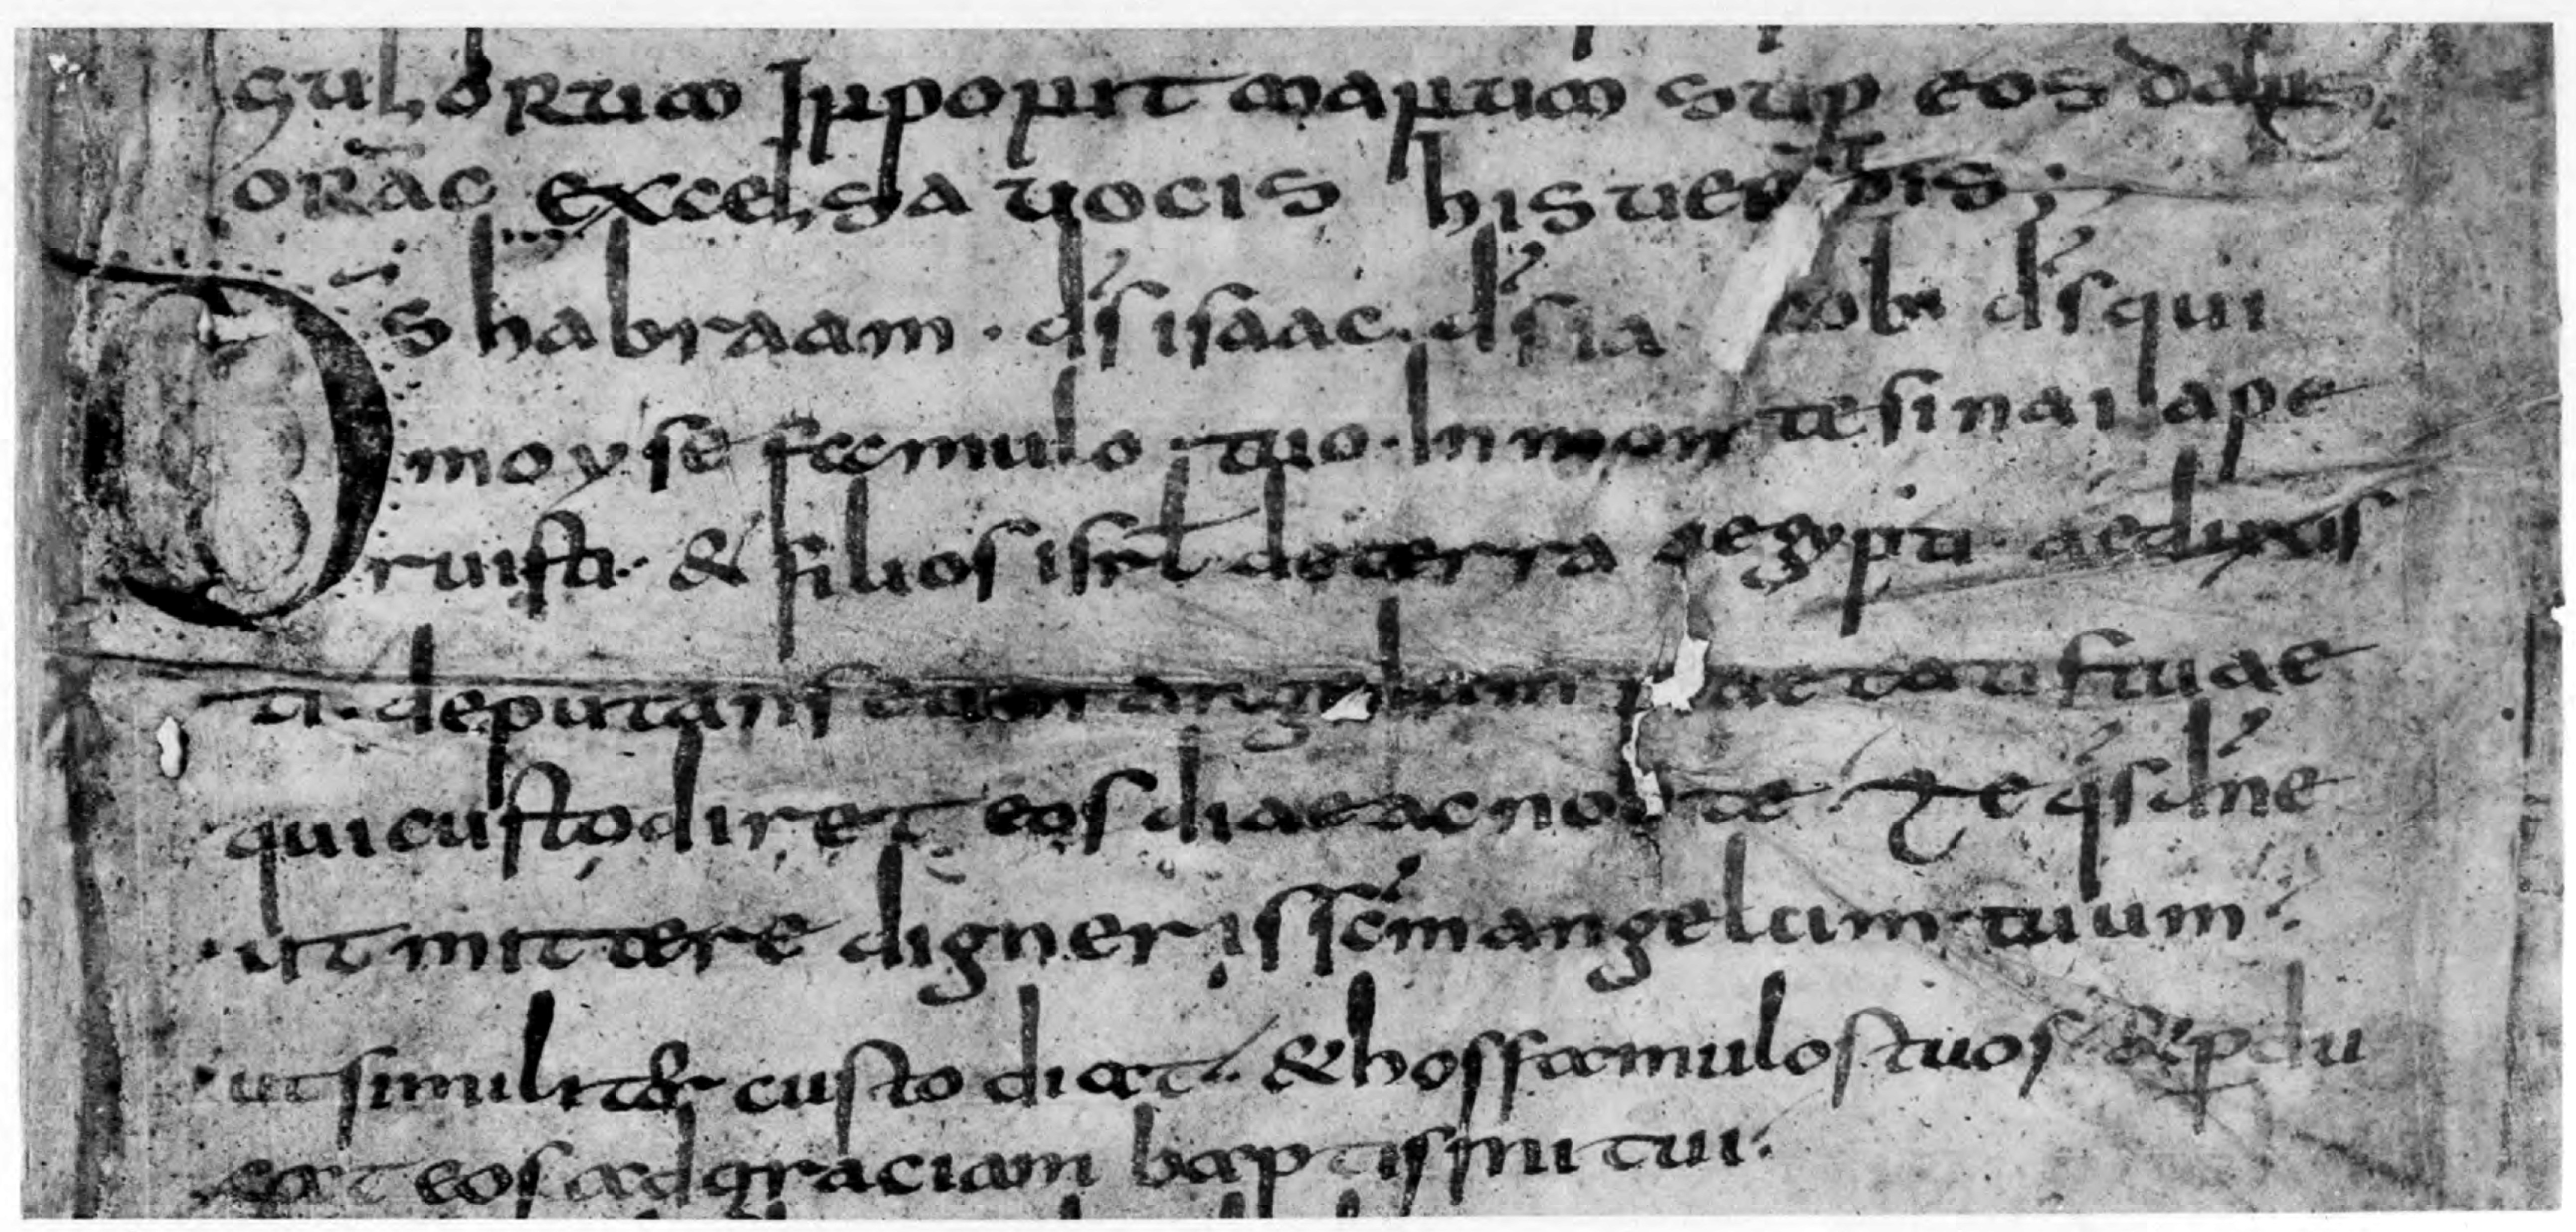 gulorum Inponit manum sup eos dans
orāc excelsa vocis his verbis;
D̄s habraam · d̄s isaac · d̄s ia cobi d̄s qui
moyse famulo · tuo · In monte sinai ape
ruisti · & filios isrl de terra aegypti · aeduxis
ti · deputans eum angelum pietatis tuae
qui custodiret eos diae ac nocte · Te q̄s dn̄e
· ut mittere digneris sc̄m angelum tuum ·
· ut similiter custodiat · & hos famulos tuos & p̱du
cat eos ad graciam baptismi tui ·